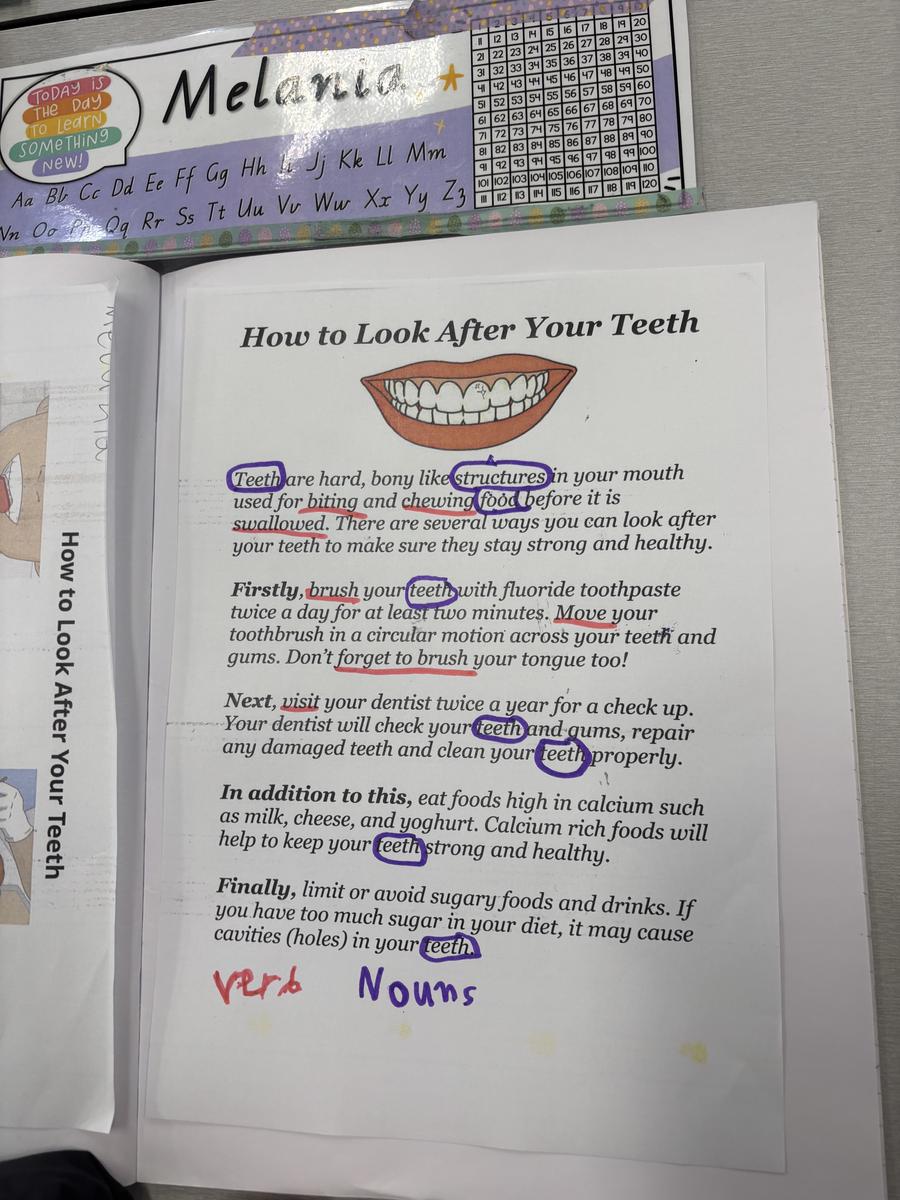 TODAY IS
THE DAY
TO LEARN
SOMETHING
NEW!
Melania
Aa Bb Cc Dd Ee Ff Gg Hh Ii Jj Kk Ll Mm
Nn Oo Pp Qq Rr Ss Tt Uu Vv Ww Xx Yy Zz
1 2 3 4 5 6 7 8 9 10
11 12 13 14 15 16 17 18 19 20
21 22 23 24 25 26 27 28 29 30
31 32 33 34 35 36 37 38 39 40
41 42 43 44 45 46 47 48 49 50
51 52 53 54 55 56 57 58 59 60
61 62 63 64 65 66 67 68 69 70
71 72 73 74 75 76 77 78 79 80
81 82 83 84 85 86 87 88 89 90
91 92 93 94 95 96 97 98 99 100
101 102 103 104 105 106 107 108 109 110
111 112 113 114 115 116 117 118 119 120
How to Look After Your Teeth
How to Look After Your Teeth
Teeth are hard, bony like structures in your mouth
used for biting and chewing food before it is
swallowed. There are several ways you can look after
your teeth to make sure they stay strong and healthy.
Firstly, brush your teeth with fluoride toothpaste
twice a day for at least two minutes. Move your
toothbrush in a circular motion across your teeth and
gums. Don't forget to brush your tongue too!
Next, visit your dentist twice a year for a check up.
Your dentist will check your teeth and gums, repair
any damaged teeth and clean your teeth properly.
In addition to this, eat foods high in calcium such
as milk, cheese, and yoghurt. Calcium rich foods will
help to keep your teeth strong and healthy.
Finally, limit or avoid sugary foods and drinks. If
you have too much sugar in your diet, it may cause
cavities (holes) in your teeth.
verb Nouns